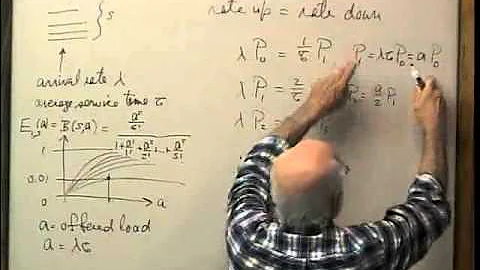 S
arrival rate λ
average service time τ
E₁,ₛ(a) = B(s,a) = (aˢ/s!) / (1 + a/1! + a²/2! + … + aˢ/s!)
1
0.01
0
a
a = offered load
a = λτ
rate up = rate down
λ P₀ = 1/τ P₁
P₁ = λτ P₀ = a P₀
λ P₁ = 2/τ
= a/2 P₁
λ P₂ =